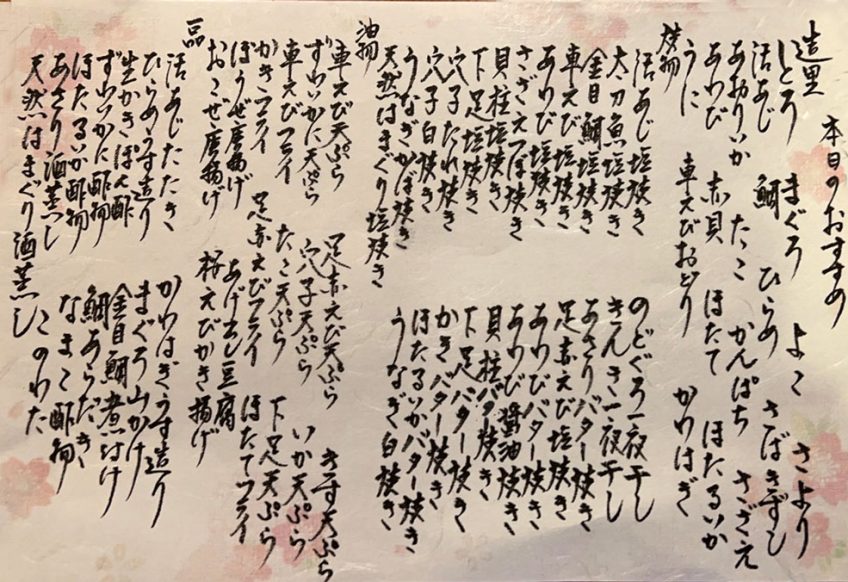 本日のおすすめ
造里
しとろ まぐろ よこ さより
活あじ 鯛 ひらめ さばきずし
あおりいか たこ かんぱち さざえ
あわび 赤貝 ほたて ほたるいか
うに 車えびおどり かわはぎ
焼物
活あじ塩焼き のどぐろ一夜干し
太刀魚塩焼き きんき一夜干し
金目鯛塩焼き あさりバター焼き
車えび塩焼き 足赤えび塩焼き
あわび塩焼き あわびバター焼き
さざえつぼ焼き あわび醤油焼き
貝柱塩焼き 貝柱バター焼き
下足塩焼き 下足バター焼き
穴子たれ焼き かきバター焼き
穴子白焼き ほたるいかバター焼き
うなぎかば焼き うなぎ白焼き
天然はまぐり塩焼き
油物
車えび天ぷら 足赤えび天ぷら きす天ぷら
ずわいかに天ぷら 穴子天ぷら いか天ぷら
車えびフライ たこ天ぷら 下足天ぷら
かきフライ 足赤えびフライ ほたてフライ
ぼうぜ唐揚げ あげだし豆腐
おこぜ唐揚げ 桜えびかき揚げ
一品
活あじたたき かわはぎうす造り
ひらめうす造り まぐろ山かけ
生かきぽん酢 金目鯛煮付け
ずわいかに酢物 鯛あらだき
ほたるいか酢物 なまこ酢物
あさり酒蒸し このわた
天然はまぐり酒蒸し